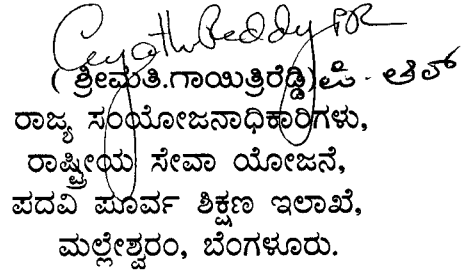 Gayathri Reddy P.R
( ಶ್ರೀಮತಿ.ಗಾಯಿತ್ರಿರೆಡ್ಡಿ)ಪಿ. ಆರ್
ರಾಜ್ಯ ಸಂಯೋಜನಾಧಿಕಾರಿಗಳು,
ರಾಷ್ಟ್ರೀಯ ಸೇವಾ ಯೋಜನೆ,
ಪದವಿ ಪೂರ್ವ ಶಿಕ್ಷಣ ಇಲಾಖೆ,
ಮಲ್ಲೇಶ್ವರಂ, ಬೆಂಗಳೂರು.